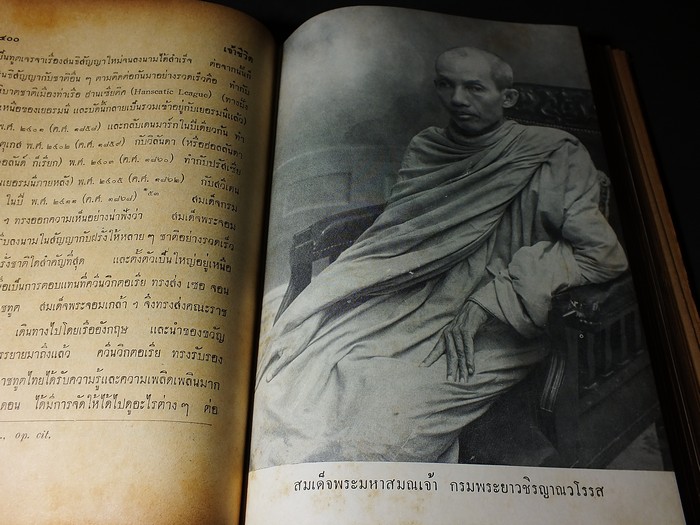 ๔๐๐
เจ้าชีวิต
เป็นทูตเจรจาเรื่องสนธิสัญญาใหม่จนลงนามได้สำเร็จ ต่อจากนั้นก็
สนธิสัญญากับชาติอื่น ๆ ตามติดต่อกันมาอย่างรวดเร็วคือ ทำกับ
ชาติเมืองท่าเรือ ฮานเซียติค (Hanseatic League) (ทางทิศ
เหนือของเยอรมนี และบัดนี้กลายเป็นรวมเข้าอยู่กับเยอรมนีแล้ว)
พ.ศ. ๒๔๐๑ (ค.ศ. ๑๘๕๘) และกลับเดนมาร์กในปีเดียวกัน ทำ
พ.ศ. ๒๔๐๒ (ค.ศ. ๑๘๕๙) กับวิลันดา (หรือฮอลลันดา
ฮอลันด์ ก็เรียก) พ.ศ. ๒๔๐๓ (ค.ศ. ๑๘๖๐) ทำกับปรัสเซีย
เยอรมนีภายหลัง) พ.ศ. ๒๔๐๕ (ค.ศ. ๑๘๖๒) กับสวีเดน
ในปี พ.ศ. ๒๔๑๑ (ค.ศ. ๑๘๖๘) ๕๓ สมเด็จกรม
ฯ ทรงออกความเห็นอย่างน่าฟังว่า สมเด็จพระจอม
รีบลงนามในสัญญากับฝรั่งให้หลาย ๆ ชาติอย่างรวดเร็ว
ฝรั่งชาติใดสำคัญที่สุด และตั้งตัวเป็นใหญ่อยู่เหนือ
เพื่อเป็นการตอบแทนที่ควีนวิกตอเรีย ทรงส่ง เซอ จอน
ทูต สมเด็จพระจอมเกล้า ฯ จึงทรงส่งคณะราช
เดินทางไปโดยเรืออังกฤษ และนำของขวัญ
บรรยายมาถึงแล้ว ควีนวิกตอเรีย ทรงรับรอง
ราชทูตไทยได้รับความรู้และความเพลิดเพลินมาก
ได้มีการจัดให้ได้ไปดูอะไรต่าง ๆ ต่อ
., Op. cit.
สมเด็จพระมหาสมณเจ้า กรมพระยาวชิรญาณวโรรส